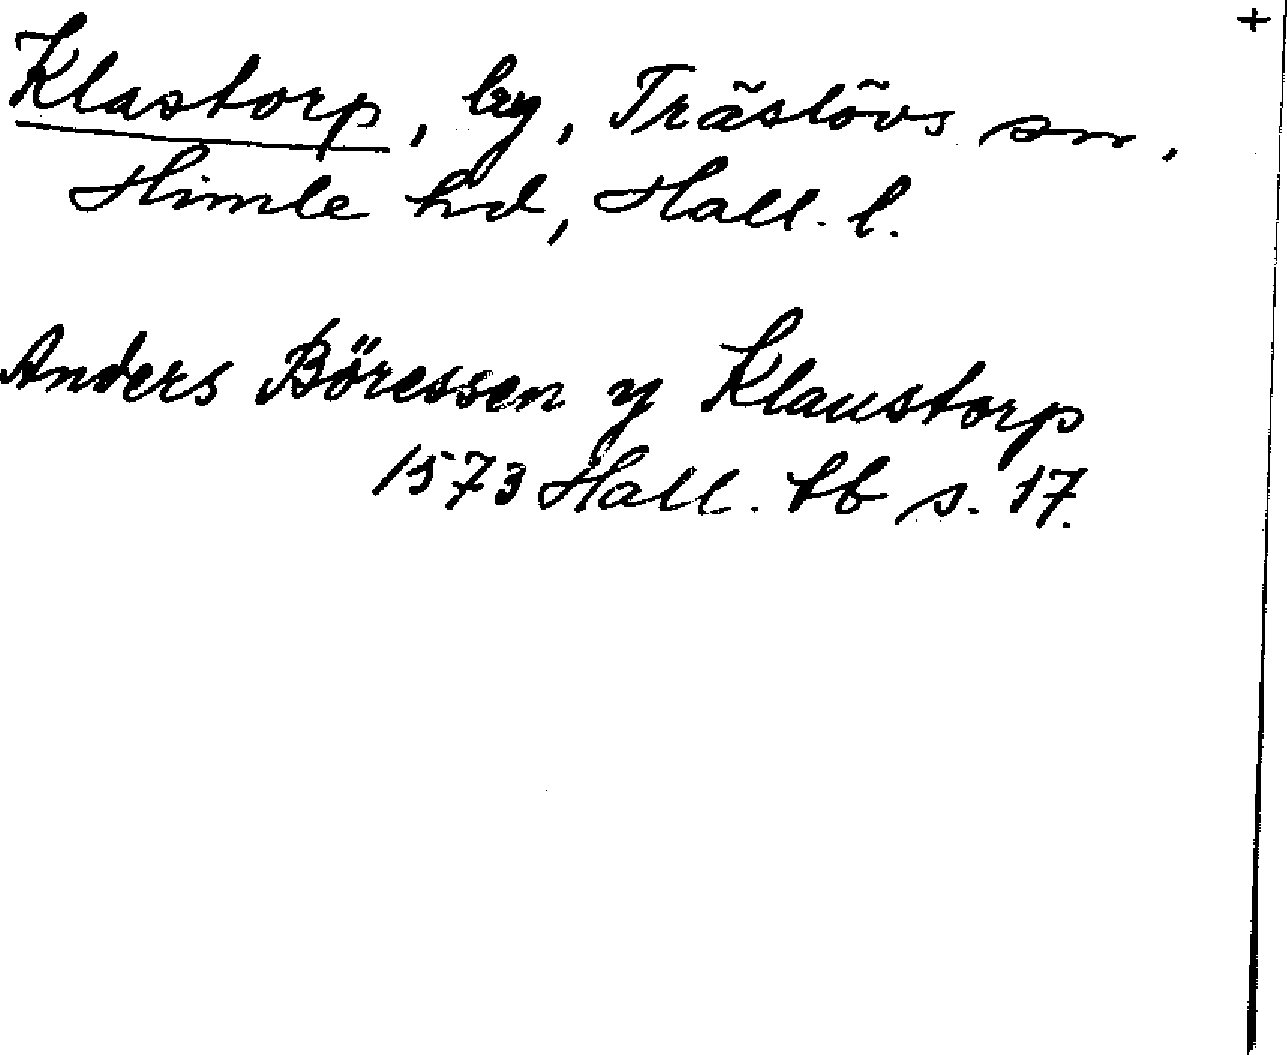 +
Klastorp, by, Träslövs sn,
Himle hd, Hall. l.
Anders Böressen y Klaustorp
1573 Hall. lb s. 17.